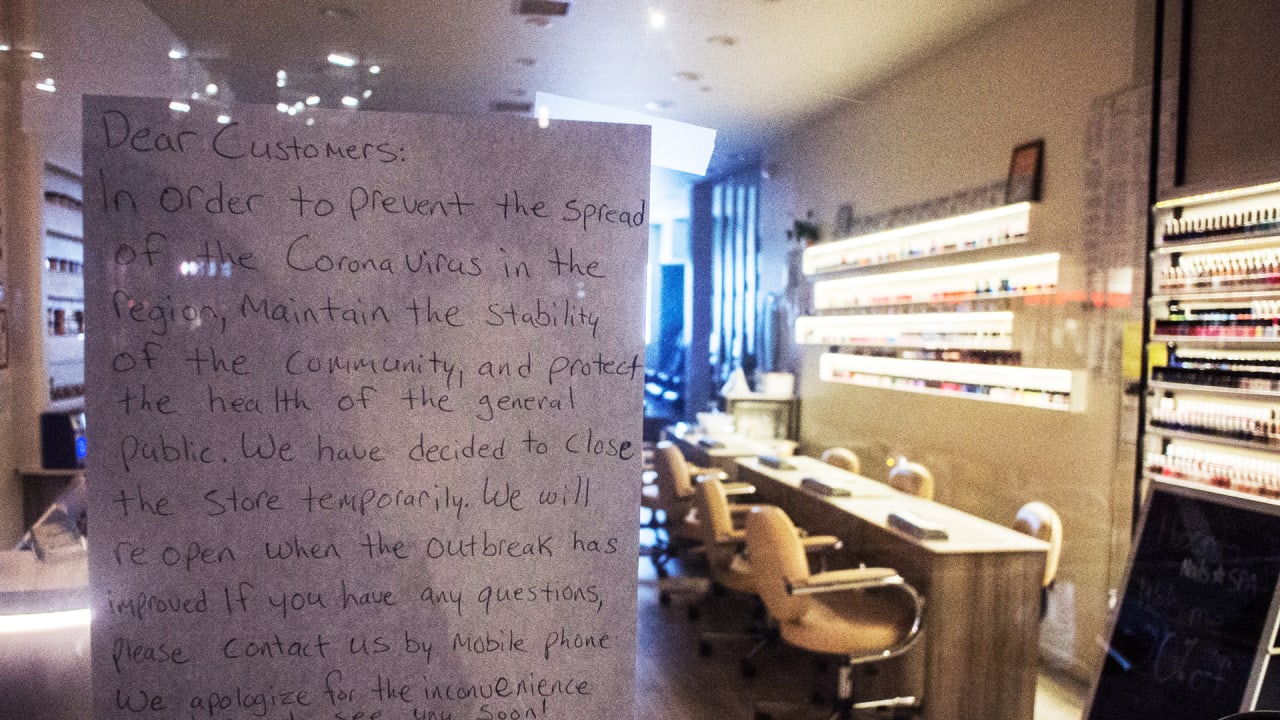 Dear Customers:
In order to prevent the spread
of the Corona Virus in the
region, Maintain the stability
of the community, and protect
the health of the general
public. We have decided to close
the store temporarily. We will
re open when the outbreak has
improved. If you have any questions,
please contact us by Mobile phone
We apologize for the inconvenience
see you soon!
Nails ★ SPA